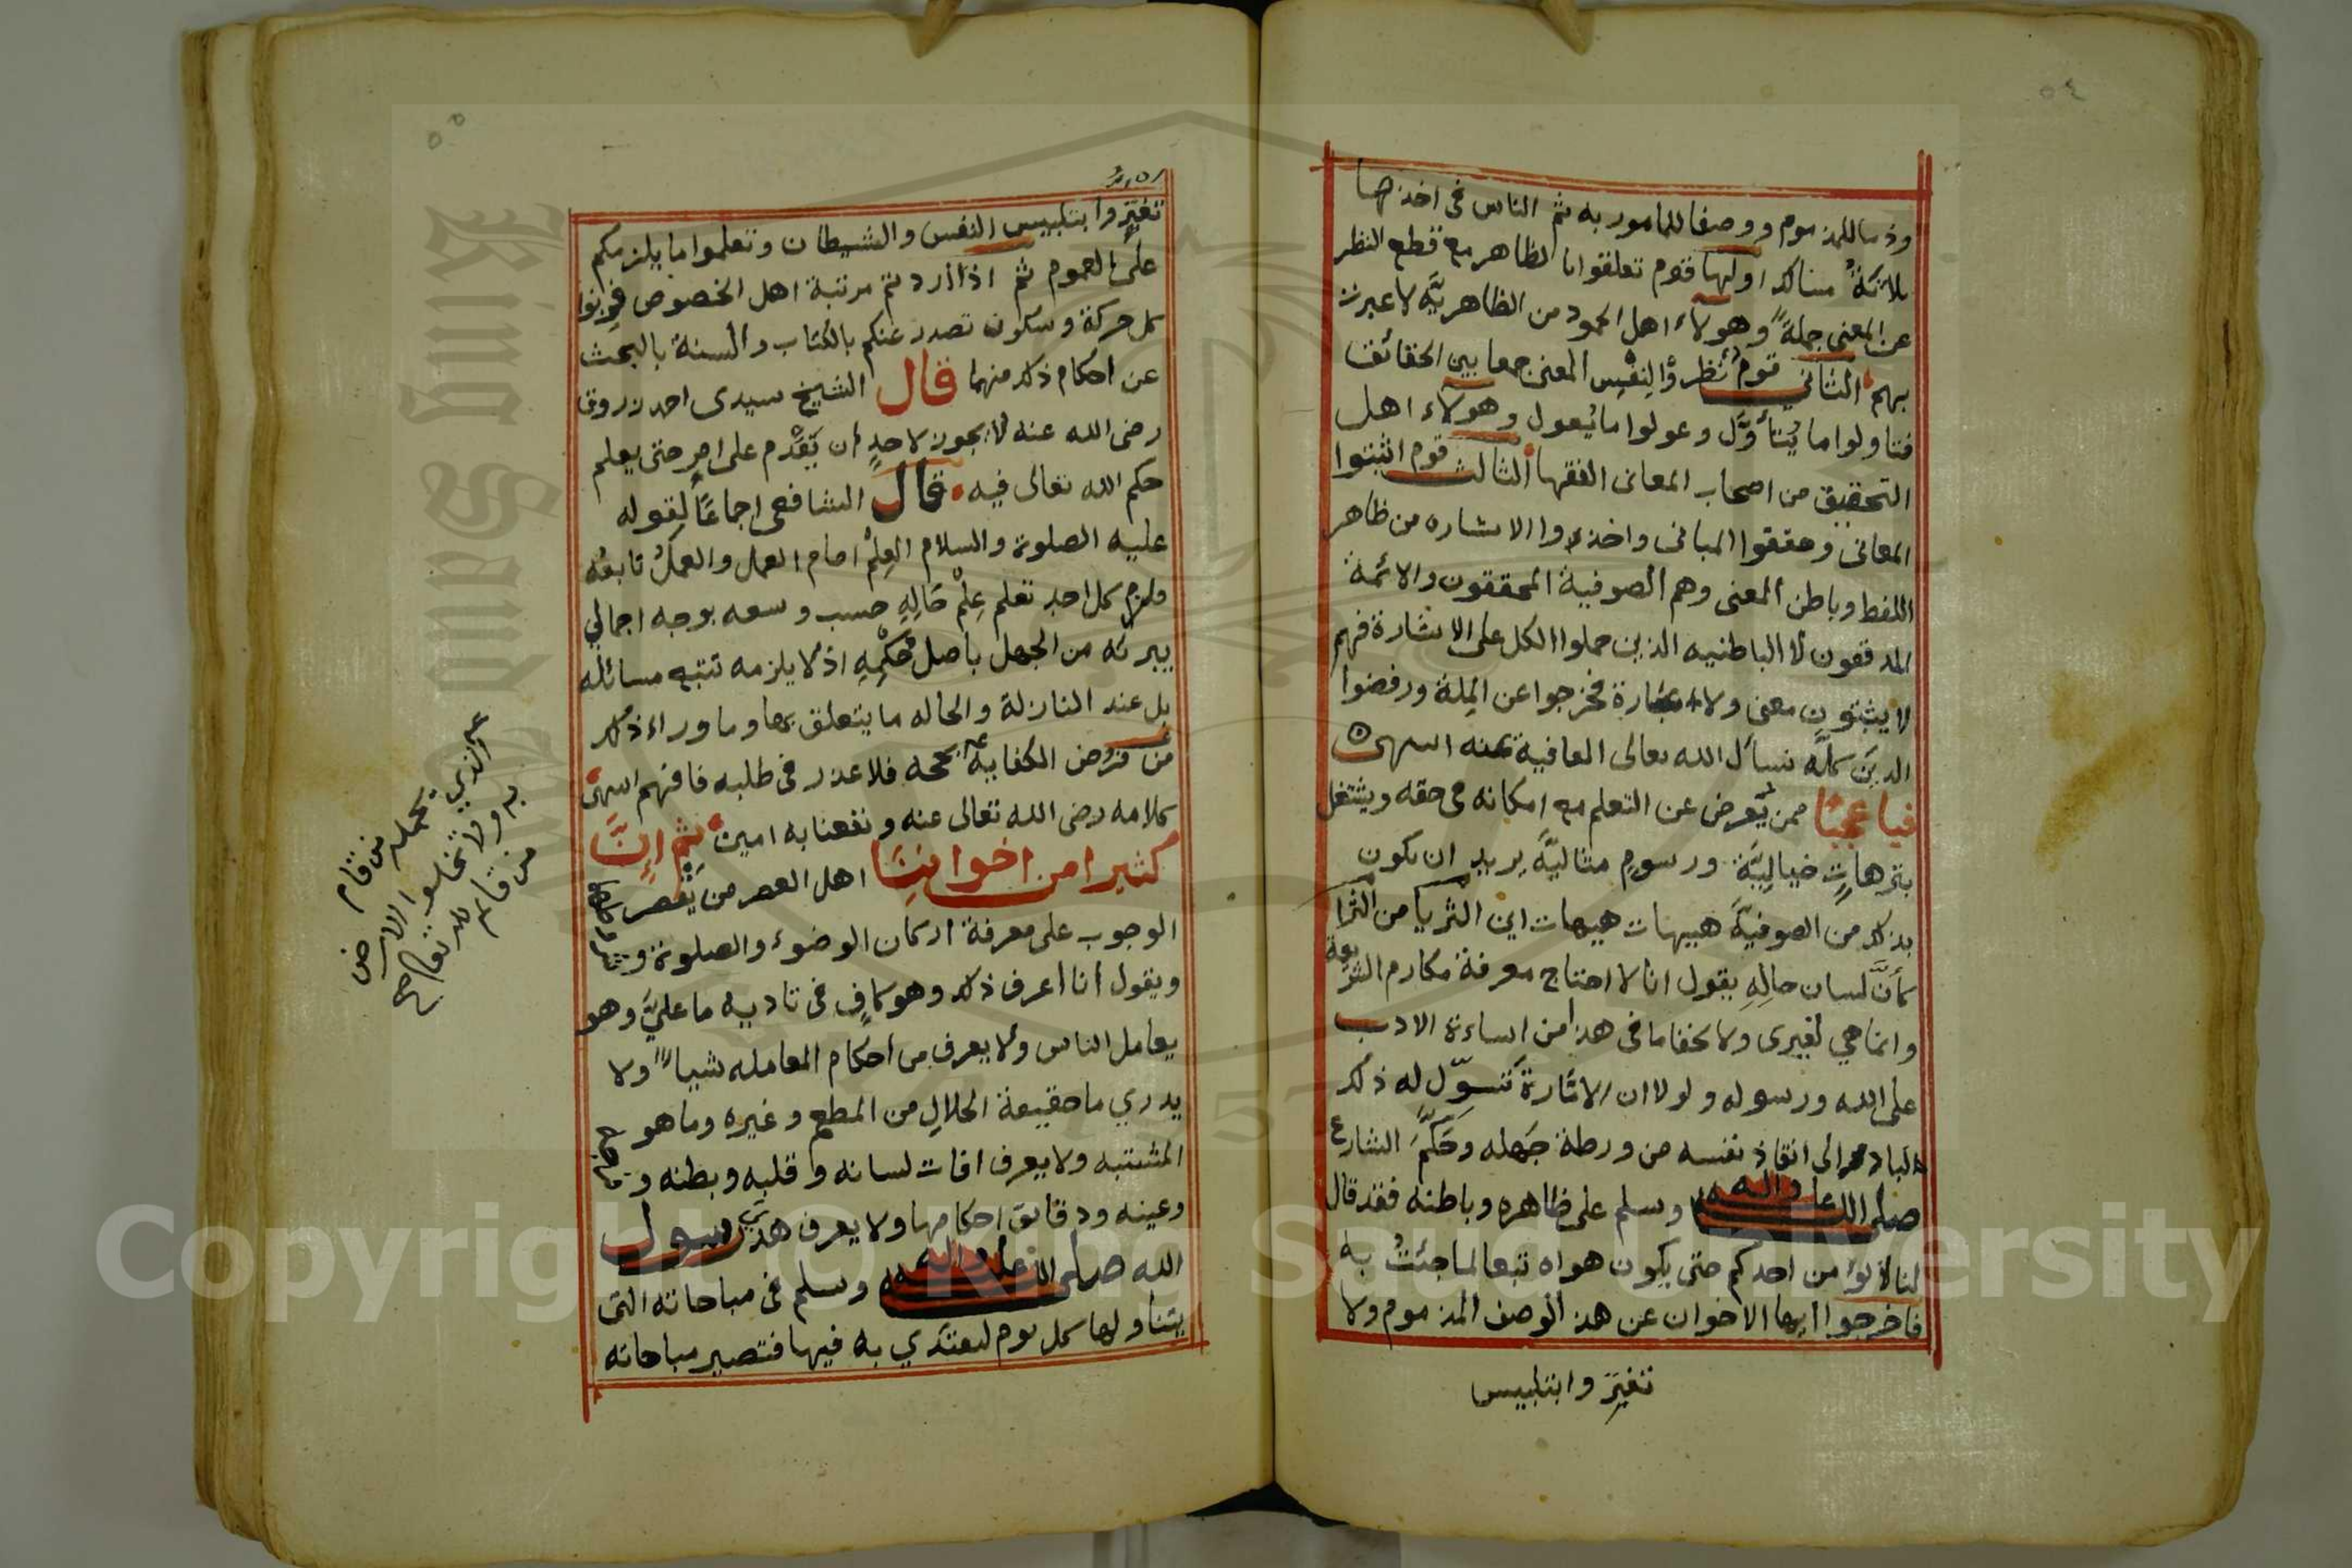 ٥٤
وذما للمذموم ووصفا للمامور به ثم الناس فى اخذها
ثلاثةٌ مسالك اولها قوم تعلقوا با لظاهر مع قطع النظر
عن المعنى جملةً وهولاء اهل الجمود من الظاهريّه لا عبرت
بهم الثانى قوم نظروْا لِنفْسِ المعنى جمعا بين الحقائق
فتاولوا ما يُتأوَّل وعولوا ما يُعول وهولاء اهل
التحقيق من اصحاب المعانى الفقها الثالث قوم اثبتوا
المعانى وحققوا المبانى واخذوا الاشاره من ظاهر
اللفظ وباطن المعنى وهم الصوفية المحققون والائمة
المدققون لا الباطنيه الذين حملوا الكل على الاشارة فهم
لا يثبتون معنى ولا عبارة فخرجوا عن المِلة ورفضوا
الدين كلَّه نسأل الله تعالى العافية عنه انتهى
فيا عجبًا ممن يُعرض عن التعلم مع امكانه فى حقه ويشتغل
بترهاتٍ خياليَّة ورسوم مثاليَّه يريد ان يكون
بذلك من الصوفيَّه هيهات هيهات اين الثريا من الثرا
كأنَّ لسان حالِهِ يقول انا لا احتاج معرفة مكارم الشريعة
وانما هي لغيرى ولا يخفا ما فى هذا من اساءة الادب
على الله ورسوله ولولا ان الامّارة تُسوّل له ذلك
لبادر الى انقاذ نفسه من ورطة جَهله وحَكَّمَ الشارع
صلى الله عليه واله وسلم على ظاهره وباطنه فقد قال
لنا لا يؤمن احدكم حتى يكون هواه تبعا لما جئتُ به
فاخرجوا ايها الاخوان عن هذ الوصف المذموم ولا
تغترّوا بتلبيس
٥٥
تغترّوا بتلبيس النفس والشيطان وتعلموا ما يلزمكم
على العموم ثم اذا اردتم مرتبة اهل الخصوص فزنوا
كل حركة وسكون تصدر عنكم بالكتاب والسنة بالبحث
عن احكام ذلك منهما قال الشيخ سيدى احمد زروق
رضى الله عنه لا يجوز لاحدٍ ان يَقْدم على امرٍ حتى يعلم
حكم الله تعالى فيه قال الشافعى اجماعًا لقوله
عليه الصلوة والسلام العِلمُ امام العمل والعملُ تابعُه
فلزم كل احد تعلم عِلْم حَالِهِ حسب وسعه بوجه اجمالي
يبرئه من الجهل باصل حُكْمِهِ اذ لا يلزمه تتبع مسائله
بل عند النازلة والحاله ما يتعلق بها وما وراء ذلك
من فرُض الكفاية فلا عذر فى طلبه فافهم انتهى
كلامه رضى الله تعالى عنه ونفعنا به امين ثم انَّ
كثيرا من اخواننا اهل العصر من يَقْصر
الوجوب على معرفة اركان الوضوء والصلوة و
ويقول انا اعرف ذلك وهو كافٍ فى تاديه ما عليَّ وهو
يعامل الناس ولا يعرف من احكام المعامله شياءً ولا
يدري ما حقيقة الحلالِ من المطعم وغيره وما هو
المشتبه ولا يعرف افات لسانه وقلبِه وبطنه و
وعينه ودقايق احكامها ولا يعرف هَدْيَ رسول
الله صلى الله عليه واله وسلم فى مباحاته التى
يتناولها كل يوم ليقتدي به فيها فتصير مباحاته
من قام
به ولا تخلوا الارض
من قايم لله تعالى صح